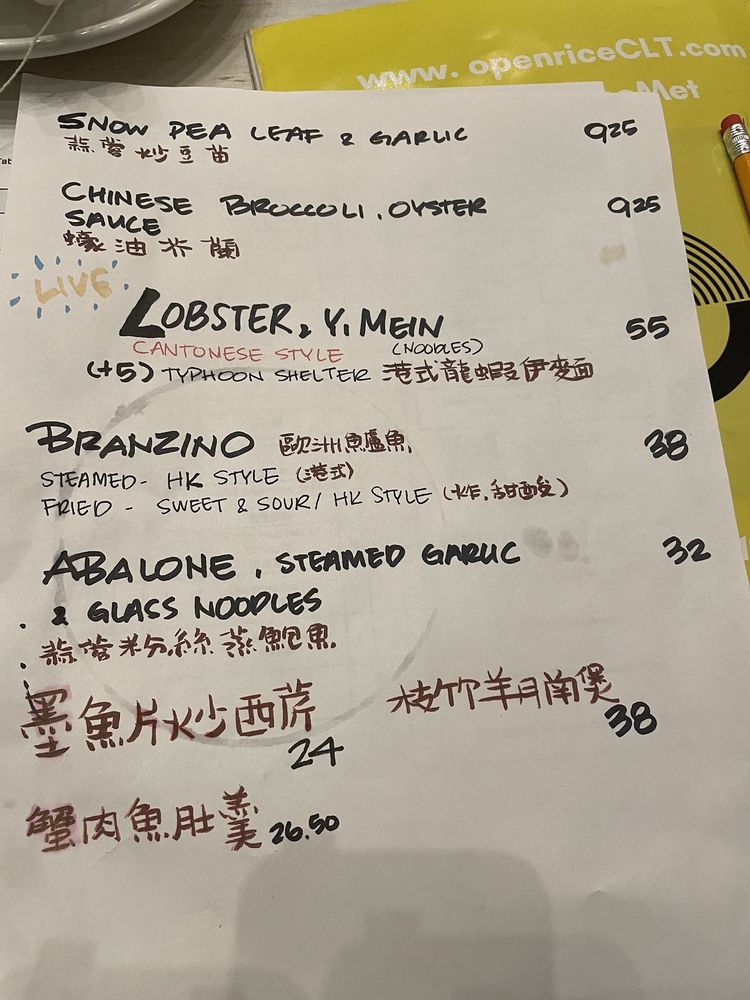 www.openriceCLT.com
oMet
Tab
SNOW PEA LEAF & GARLIC 925
蒜蓉炒豆苗
CHINESE BROCCOLI, OYSTER 925
SAUCE
蠔油芥蘭
LIVE
LOBSTER & YI MEIN 55
CANTONESE STYLE (NOODLES)
(+5) TYPHOON SHELTER 港式龍蝦伊麵
BRANZINO 歐洲魚鱸魚 38
STEAMED - HK STYLE (港式)
FRIED - SWEET & SOUR / HK STYLE (炸,甜酸)
ABALONE, STEAMED GARLIC 32
& GLASS NOODLES
蒜蓉粉絲蒸鮑魚
墨魚片炒西芹 24
枝竹羊腩煲 38
蟹肉魚肚羹 26.50